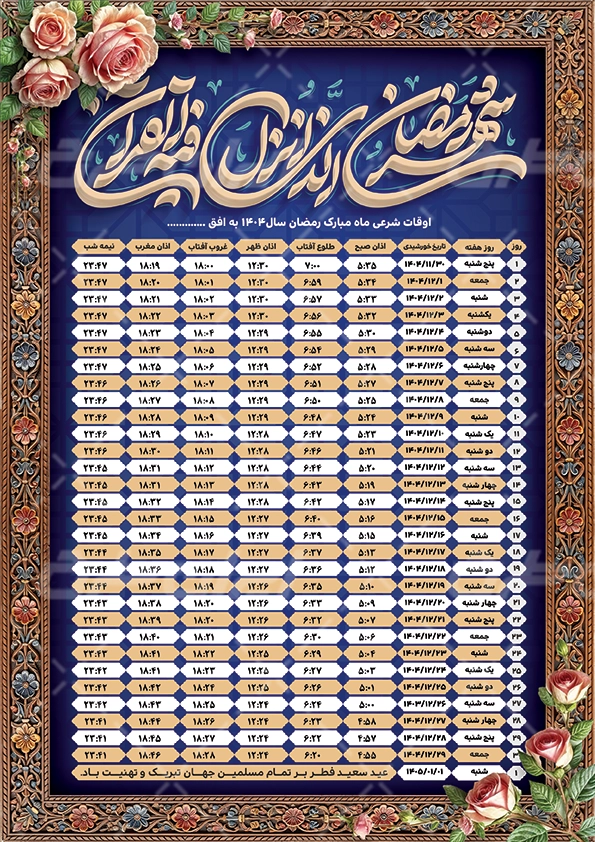 شهر رمضان الذی انزل فیه القرآن
اوقات شرعی ماه مبارک رمضان سال۱۴۰۴ به افق .............
روز روز هفته تاریخ خورشیدی اذان صبح طلوع آفتاب اذان ظهر غروب آفتاب اذان مغرب نیمه شب
۱ پنج شنبه ۱۴۰۴/۱۱/۳۰ ۵:۳۵ ۷:۰۰ ۱۲:۳۰ ۱۸:۰۰ ۱۸:۱۹ ۲۳:۴۷
۲ جمعه ۱۴۰۴/۱۲/۱ ۵:۳۴ ۶:۵۹ ۱۲:۳۰ ۱۸:۰۱ ۱۸:۲۰ ۲۳:۴۷
۳ شنبه ۱۴۰۴/۱۲/۲ ۵:۳۳ ۶:۵۷ ۱۲:۳۰ ۱۸:۰۲ ۱۸:۲۱ ۲۳:۴۷
۴ یکشنبه ۱۴۰۴/۱۲/۳ ۵:۳۲ ۶:۵۶ ۱۲:۳۰ ۱۸:۰۳ ۱۸:۲۲ ۲۳:۴۷
۵ دوشنبه ۱۴۰۴/۱۲/۴ ۵:۳۰ ۶:۵۵ ۱۲:۲۹ ۱۸:۰۴ ۱۸:۲۳ ۲۳:۴۷
۶ سه شنبه ۱۴۰۴/۱۲/۵ ۵:۲۹ ۶:۵۴ ۱۲:۲۹ ۱۸:۰۵ ۱۸:۲۴ ۲۳:۴۷
۷ چهارشنبه ۱۴۰۴/۱۲/۶ ۵:۲۸ ۶:۵۲ ۱۲:۲۹ ۱۸:۰۶ ۱۸:۲۵ ۲۳:۴۷
۸ پنج شنبه ۱۴۰۴/۱۲/۷ ۵:۲۷ ۶:۵۱ ۱۲:۲۹ ۱۸:۰۷ ۱۸:۲۶ ۲۳:۴۶
۹ جمعه ۱۴۰۴/۱۲/۸ ۵:۲۵ ۶:۵۰ ۱۲:۲۹ ۱۸:۰۸ ۱۸:۲۷ ۲۳:۴۶
۱۰ شنبه ۱۴۰۴/۱۲/۹ ۵:۲۴ ۶:۴۸ ۱۲:۲۹ ۱۸:۰۹ ۱۸:۲۸ ۲۳:۴۶
۱۱ یک شنبه ۱۴۰۴/۱۲/۱۰ ۵:۲۳ ۶:۴۷ ۱۲:۲۸ ۱۸:۱۰ ۱۸:۲۹ ۲۳:۴۶
۱۲ دو شنبه ۱۴۰۴/۱۲/۱۱ ۵:۲۱ ۶:۴۶ ۱۲:۲۸ ۱۸:۱۱ ۱۸:۳۰ ۲۳:۴۶
۱۳ سه شنبه ۱۴۰۴/۱۲/۱۲ ۵:۲۰ ۶:۴۴ ۱۲:۲۸ ۱۸:۱۲ ۱۸:۳۱ ۲۳:۴۵
۱۴ چهار شنبه ۱۴۰۴/۱۲/۱۳ ۵:۱۹ ۶:۴۳ ۱۲:۲۸ ۱۸:۱۳ ۱۸:۳۱ ۲۳:۴۵
۱۵ پنج شنبه ۱۴۰۴/۱۲/۱۴ ۵:۱۷ ۶:۴۲ ۱۲:۲۸ ۱۸:۱۴ ۱۸:۳۲ ۲۳:۴۵
۱۶ جمعه ۱۴۰۴/۱۲/۱۵ ۵:۱۶ ۶:۴۰ ۱۲:۲۷ ۱۸:۱۵ ۱۸:۳۳ ۲۳:۴۵
۱۷ شنبه ۱۴۰۴/۱۲/۱۶ ۵:۱۵ ۶:۳۹ ۱۲:۲۷ ۱۸:۱۶ ۱۸:۳۴ ۲۳:۴۵
۱۸ یک شنبه ۱۴۰۴/۱۲/۱۷ ۵:۱۳ ۶:۳۷ ۱۲:۲۷ ۱۸:۱۷ ۱۸:۳۵ ۲۳:۴۴
۱۹ دو شنبه ۱۴۰۴/۱۲/۱۸ ۵:۱۲ ۶:۳۶ ۱۲:۲۷ ۱۸:۱۸ ۱۸:۳۶ ۲۳:۴۴
۲۰ سه شنبه ۱۴۰۴/۱۲/۱۹ ۵:۱۰ ۶:۳۵ ۱۲:۲۶ ۱۸:۱۹ ۱۸:۳۷ ۲۳:۴۴
۲۱ چهار شنبه ۱۴۰۴/۱۲/۲۰ ۵:۰۹ ۶:۳۳ ۱۲:۲۶ ۱۸:۲۰ ۱۸:۳۸ ۲۳:۴۳
۲۲ پنج شنبه ۱۴۰۴/۱۲/۲۱ ۵:۰۷ ۶:۳۲ ۱۲:۲۶ ۱۸:۲۰ ۱۸:۳۹ ۲۳:۴۳
۲۳ جمعه ۱۴۰۴/۱۲/۲۲ ۵:۰۶ ۶:۳۰ ۱۲:۲۶ ۱۸:۲۱ ۱۸:۴۰ ۲۳:۴۳
۲۴ شنبه ۱۴۰۴/۱۲/۲۳ ۵:۰۴ ۶:۲۹ ۱۲:۲۵ ۱۸:۲۲ ۱۸:۴۱ ۲۳:۴۳
۲۵ یک شنبه ۱۴۰۴/۱۲/۲۴ ۵:۰۳ ۶:۲۷ ۱۲:۲۵ ۱۸:۲۳ ۱۸:۴۱ ۲۳:۴۲
۲۶ دو شنبه ۱۴۰۴/۱۲/۲۵ ۵:۰۱ ۶:۲۶ ۱۲:۲۵ ۱۸:۲۴ ۱۸:۴۲ ۲۳:۴۲
۲۷ سه شنبه ۱۴۰۳/۱۲/۲۶ ۵:۰۰ ۶:۲۴ ۱۲:۲۴ ۱۸:۲۵ ۱۸:۴۳ ۲۳:۴۲
۲۸ چهار شنبه ۱۴۰۴/۱۲/۲۷ ۴:۵۸ ۶:۲۳ ۱۲:۲۴ ۱۸:۲۶ ۱۸:۴۴ ۲۳:۴۱
۲۹ پنج شنبه ۱۴۰۴/۱۲/۲۸ ۴:۵۷ ۶:۲۲ ۱۲:۲۴ ۱۸:۲۷ ۱۸:۴۵ ۲۳:۴۱
۳۰ جمعه ۱۴۰۴/۱۲/۲۹ ۴:۵۵ ۶:۲۰ ۱۲:۲۴ ۱۸:۲۸ ۱۸:۴۶ ۲۳:۴۱
۱ شنبه ۱۴۰۵/۰۱/۰۱ عید سعید فطر بر تمام مسلمین جهان تبریک و تهنیت باد.